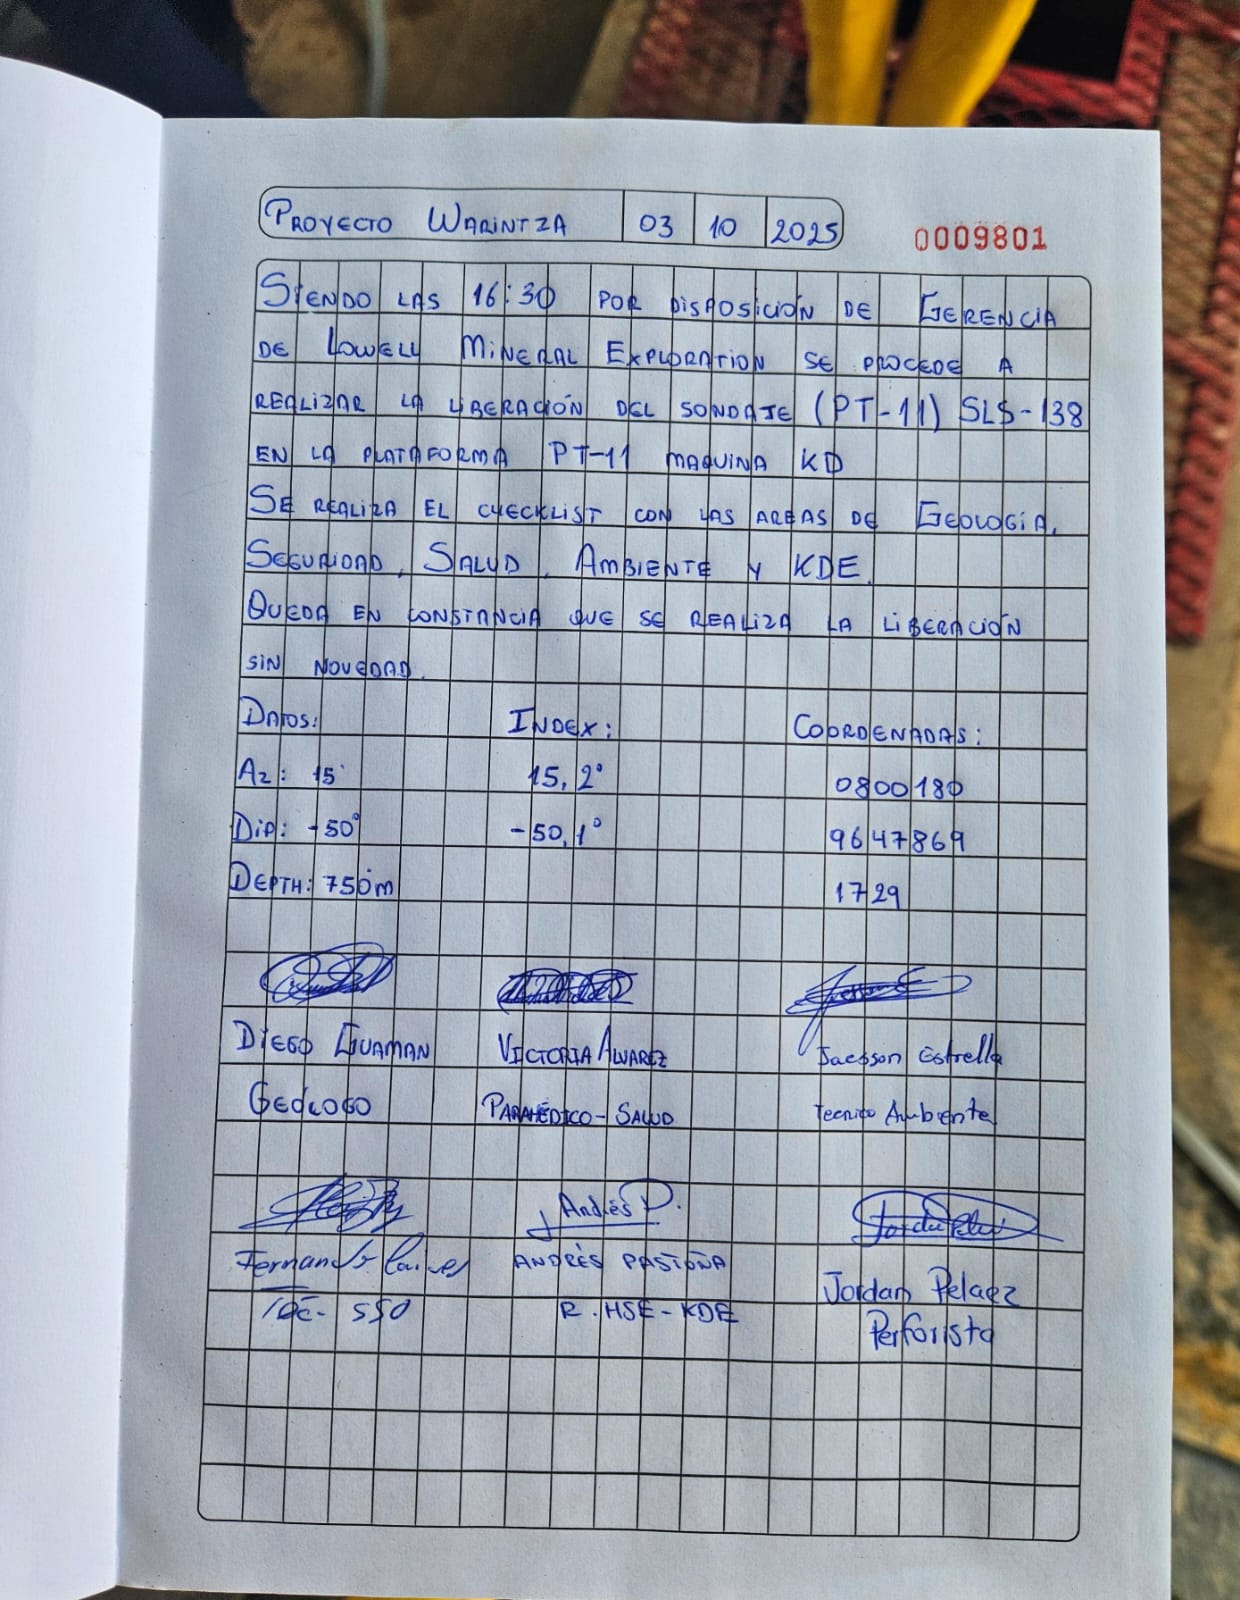 PROYECTO WARINTZA 03 10 2025 0009801
SIENDO LAS 16:30 POR DISPOSICIÓN DE GERENCIA
DE LOWELL MINERAL EXPLORATION SE PROCEDE A
REALIZAR LA LIBERACIÓN DEL SONDAJE (PT-11) SLS-138
EN LA PLATAFORMA PT-11 MAQUINA KD
SE REALIZA EL CHECKLIST CON LAS AREAS DE GEOLOGÍA,
SEGURIDAD, SALUD, AMBIENTE Y KDE.
QUEDA EN CONSTANCIA QUE SE REALIZA LA LIBERACIÓN
SIN NOVEDAD.
DATOS: INDEX: COORDENADAS:
AZ: 15° 15,2° 0800180
DIP: -50° -50,1° 9647869
DEPTH: 750m 1729
DIEGO GUAMAN VICTORIA ALVAREZ Jaesson Estrella
GEÓLOGO PARAMÉDICO - SALUD Tecnico Ambiente
Andrés P.
Fernando ANDRÉS PASTOÑA Jordan Pelaez
SSO R. HSE - KDE Perforista